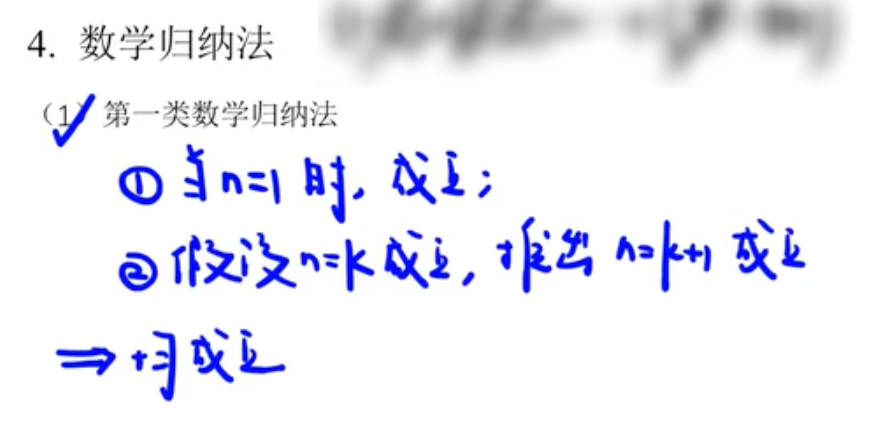 4. 数学归纳法
（1）第一类数学归纳法
① 当n=1时, 成立;
② 假设n=k成立, 推出 n=k+1 成立
⇒ 均成立